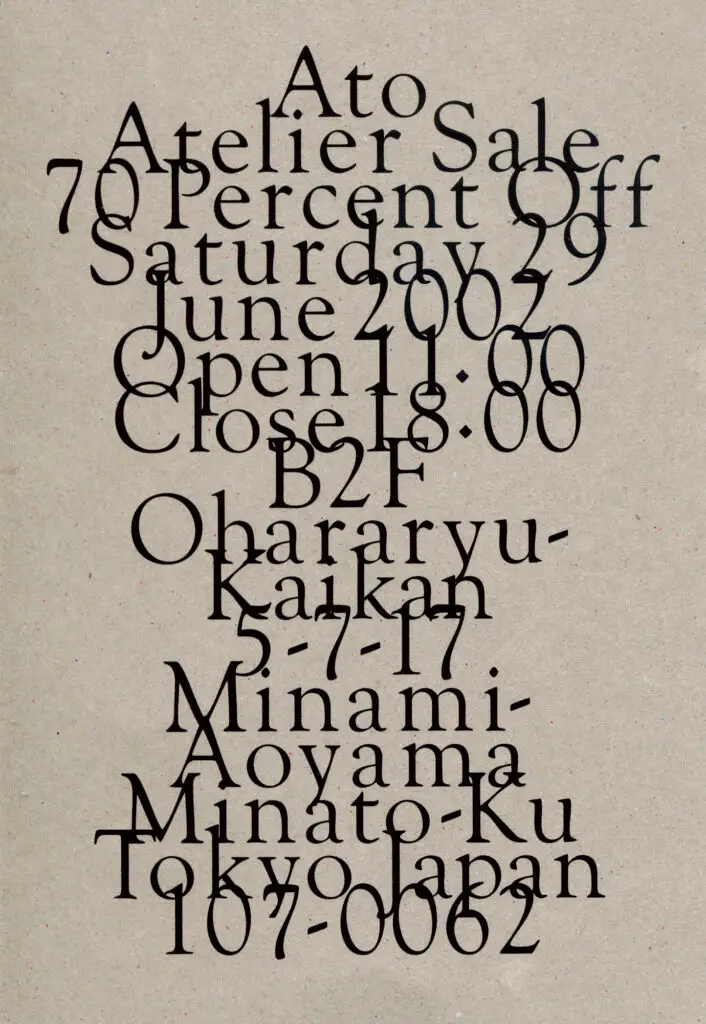 Ato
Atelier Sale
70 Percent Off
Saturday 29
June 2002
Open 11:00
Close 18:00
B2F
Ohararyu-
Kaikan
5-7-17
Minami-
Aoyama
Minato-Ku
Tokyo Japan
107-0062